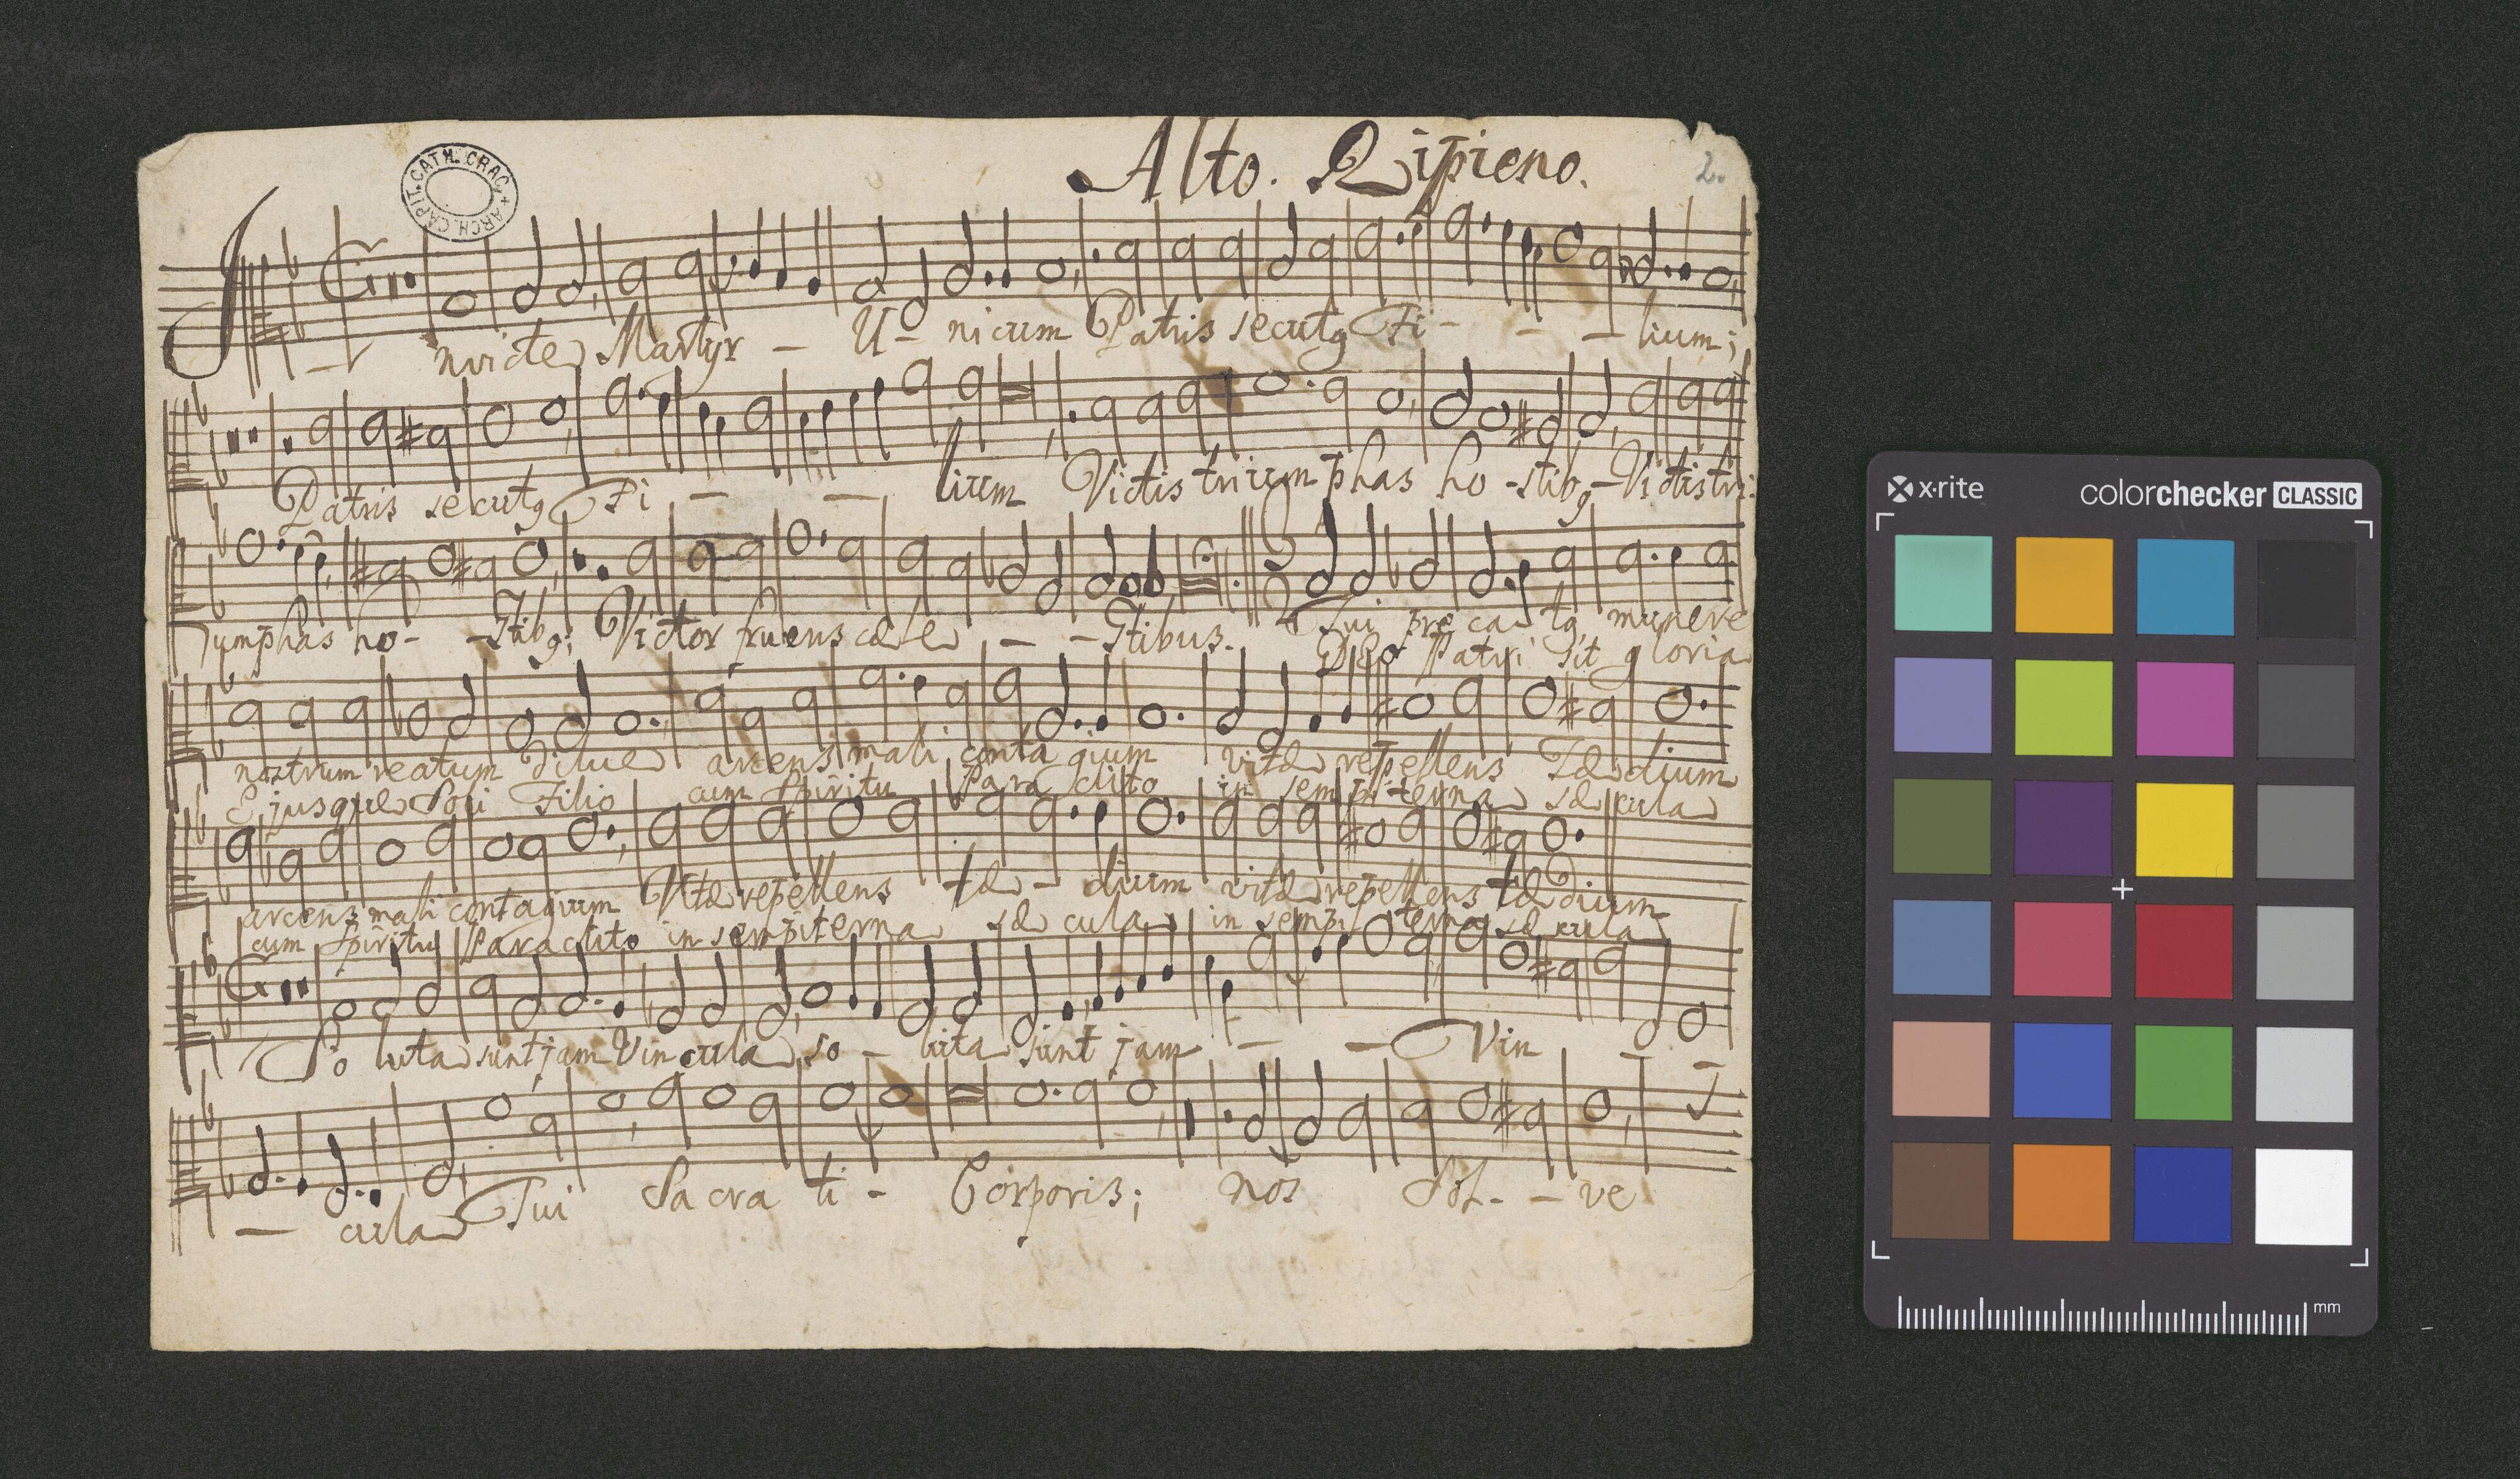 Alto. Ripieno.
2.
ARCH. CAPIT. CATH. CRAC.
Invicte Martyr - U - nicum Patris secutg Fi - - - lium;
Patris secutg Fi - - lium Victis trium phas ho - stibg - Victis tri:
umphas ho - - stibg; Victor fruens cæle - - stibus. Tui pre ca tg munere
Deo Patri sit gloria
nostrum reatum dilue arcens mali conta gium vitæ repellens Tædium
Ejusque Soli Filio cum Spiritu Para clito in sempi terna sæ cula
arcens mali contagium Vitæ repellens tæ - dium vitæ repellens tædium
cum Spiritu Paraclito in sempiterna sæ cula in sempi terna sæ cula
So luta sunt jam Vin cula so - luta sunt jam - - Vin - -
- cula Tui Sa cra ti - Corporis; nos Sol - - ve
x·rite
colorchecker CLASSIC
mm